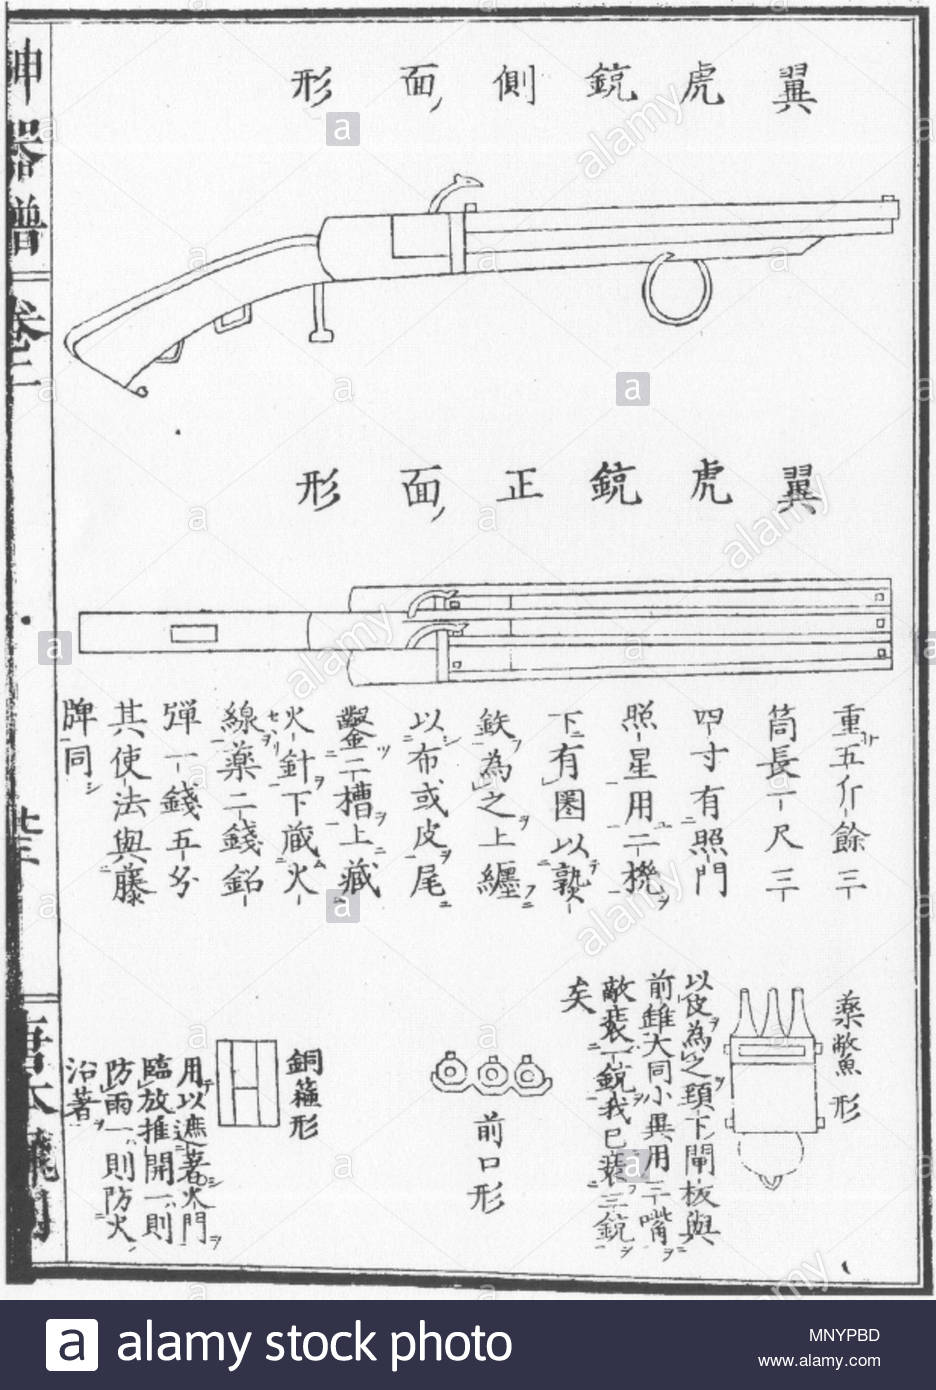 翼虎銃側面形
翼虎銃正面形
重五斤餘三
筒長一尺三
四寸有照門
照星用二機
下有圏以熟
鉄為之上纏
以布或皮尾
鑿二槽上藏
火針下藏火
線藥二錢鉛
弾一錢五分
其使法與藤
牌同
藥鱉形
以皮為之頸下閘板與
前雖大同小異用三嘴
敵裝一銃我已裝三銃
矣
前口形
銅箍形
用以遮著火門
臨放推開一則
防雨一則防火
沿著
神器譜 卷二
alamy stock photo
MNYPBD
www.alamy.com